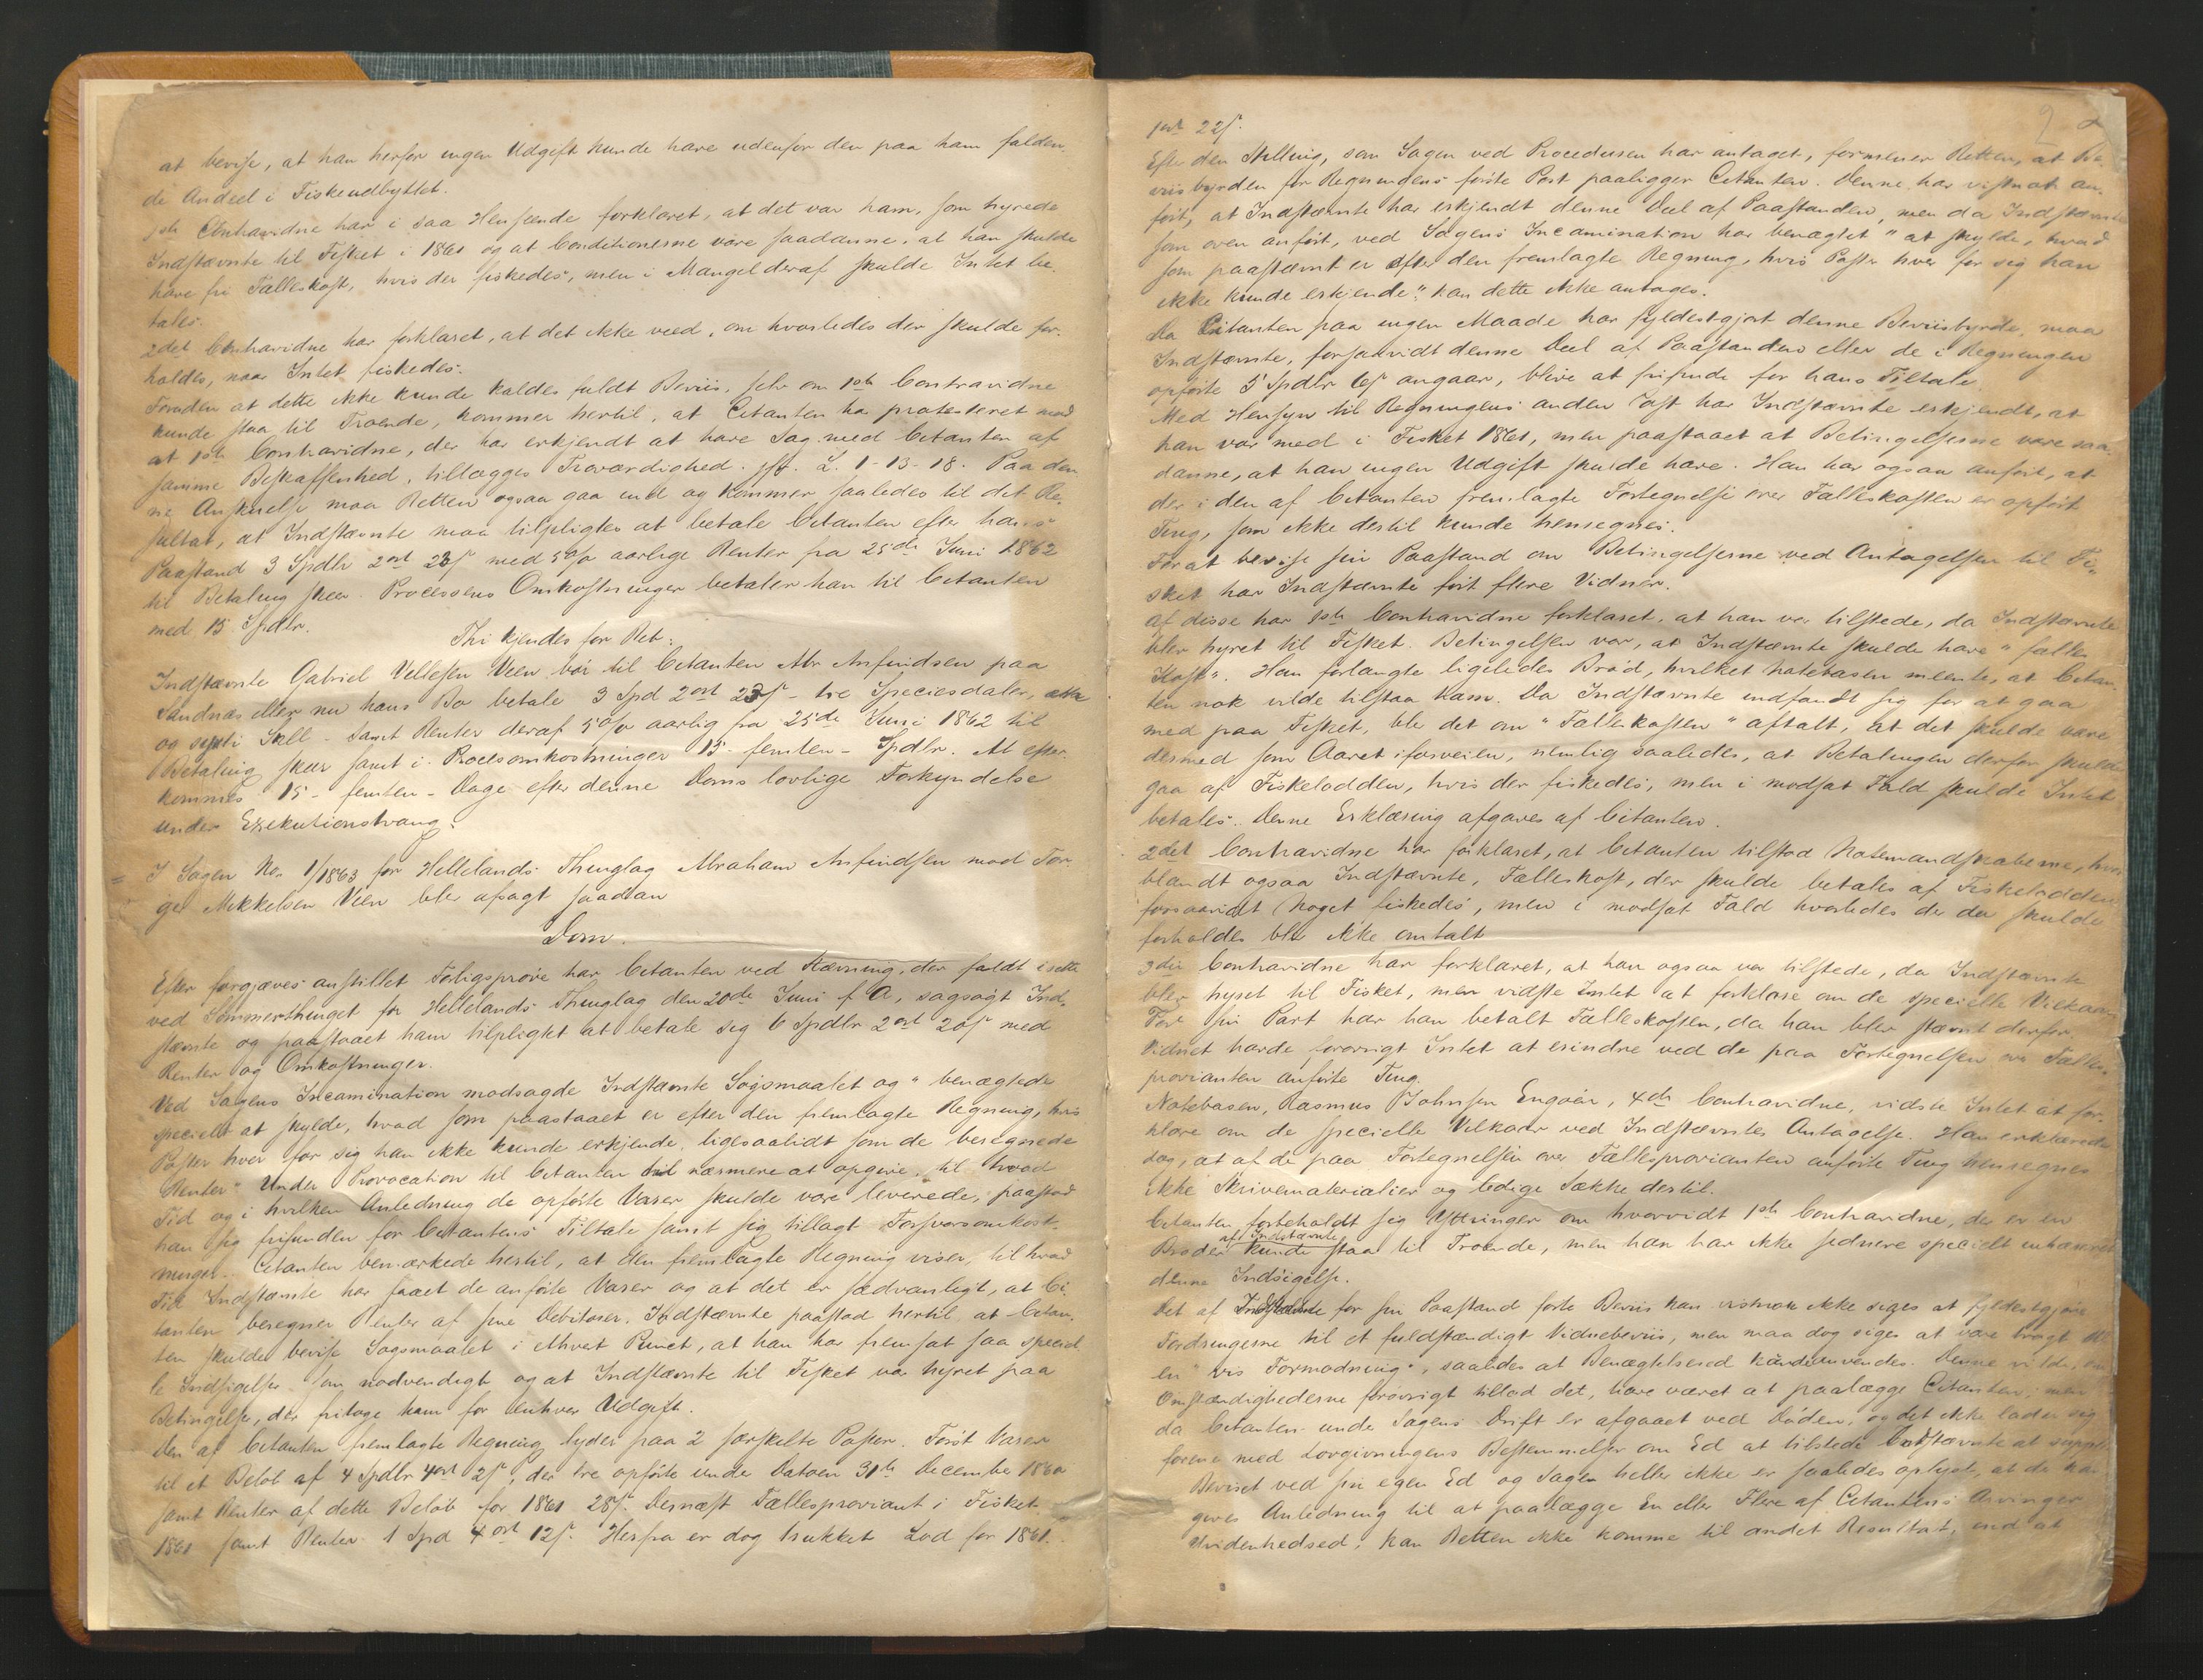 at bevise, at han herfor ingen Udgift kunde have udenfor den paa ham falden
de Andeel i Fiskeudbyttet.
1ste Contravidne har i saa Henseende forklaret, at det var ham, som hyrede
Indstævnte til Fisket i 1861 og at Conditionerne vare saadanne, at han skulde
have fri Fælleskost, hvis der fiskedes, men i Mangel deraf skulde Intet be-
tales.
2det Contravidne har forklaret, at det ikke veed, om hvorledes der skulde for-
holdes, naar Intet fiskedes.
Foruden at dette ikke kunde kaldes fuldt Beviis, selv om 1ste Contravidne
kunde staa til Troende, kommer hertil, at Citanten har protesteret mod
at 1ste Contravidne, der har erkjendt at have Sag med Citanten af
samme Beskaffenhed, tillægges Troværdighed. jfr. L. 1-13-18. Paa den
ne Anskuelse maa Retten ogsaa gaa ind og kommer saaledes til det Re-
sultat, at Indstævnte maa tilpligtes at betale Citanten efter hans
Paastand 3 Spdlr 2 ort 23 s med 5 % aarlige Renter fra 25de Juni 1862
til Betaling skeer. Processens Omkostninger betaler han til Citanten
med 15 Spdlr.
Thi kjendes for Ret:
Indstævnte Gabriel Vellesen Veen bør til Citanten Abr Anfindsen paa
Sandnæs eller nu hans Bo betale 3 Spd 2 ort 23 s - tre Speciesdaler,
og Skill - samt Renter deraf 5 % aarlig fra 25de Juni 1862 til
Betaling skeer samt i Procesomkostninger 15 - femten - Spdlr. At efter-
kommes 15 - femten - Dage efter denne Doms lovlige Forkyndelse
under Exekutionstvang.
I Sagen No. 1/1863 for Hellelands Thinglag Abraham Anfindsen mod Tor
ger Mikkelsen Veen blev afsagt saadan
Dom.
Efter forgjæves anstillet Forligsprøve har Citanten ved Stævning, der faldt i rette
ved Sommerthinget for Hellelands Thinglag den 20de Juni f. A., sagsøgt Ind-
stævnte og paastaaet ham tilpligtet at betale sig 6 Spdlr 2 ort 20 s med
Renter og Omkostninger.
Ved Sagens Incamination modsagde Indstævnte Søgsmaalet og "benægtede
specielt at skylde, hvad som paastaaet er efter den fremlagte Regning, hvis
Poster hver for sig han ikke kunde erkjende, ligesaalidt som de beregnede
Renter." Under Provocation til Citanten til nærmere at opgive, til hvad
Tid og i hvilken Anledning de opførte Varer skulde være leverede, paastod
han sig frifunden for Citantens Tiltale samt sig tillagt Forsvarsomkost-
ninger. Citanten bemærkede hertil, at den fremlagte Regning viser, til hvad
Tid Indstævnte har faaet de anførte Varer og at det er sædvanligt, at Ci-
tanten beregner Renter af sine Debitorer. Indstævnte paastod hertil, at Citan-
ten skulde bevise Søgsmaalet i ethvert Punct, at han har fremsat saa speciel-
le Indsigelser som nødvendigt og at Indstævnte til Fisket var hyret paa
Betingelse, der fritoge ham for enhver Udgift.
Den af Citanten fremlagte Regning lyder paa 2 særskilte Poster. Først Varer
til et Beløb af 4 Spdlr 4 ort 2 s, der ere opførte under Datoen 31te December 1860
samt Renter af dette Beløb for 1861 28 s. Dernæst Fællesproviant i Fisket
1861 samt Renter 1 Spd 4 ort 12 s. Herfra er dog trukket Lod for 1861.
2
1 ort 22 s.
Efter den Stilling, som Sagen ved Proceduren har antaget, formener Retten, at Be-
viisbyrden for Regningens første Post paaligger Citanten. Denne har vistnok an-
ført, at Indstævnte har erkjendt denne Deel af Paastanden, men da Indstævnte
som oven anført, ved Sagens Incamination har benægtet "at skylde, hvad
som paastævnt er efter den fremlagte Regning, hvis Poster hver for sig han
ikke kunde erkjende", kan dette ikke antages.
Da Citanten paa ingen Maade har fyldestgjort denne Beviisbyrde, maa
Indstævnte, forsaavidt denne Deel af Paastanden eller de i Regningen
opførte 5 Spdlr 6 s angaar, blive at frifinde for hans Tiltale.
Med Hensyn til Regningens anden Post har Indstævnte erkjendt, at
han var med i Fisket 1861, men paastaaet at Betingelserne vare saa-
danne, at han ingen Udgift skulde have. Han har ogsaa anført, at
der i den af Citanten fremlagte Fortegnelse over Fælleskosten er opført
Ting, som ikke dertil kunde henregnes.
For at bevise sin Paastand om Betingelserne ved Antagelsen til Fi-
sket har Indstævnte ført flere Vidner.
Af disse har 1ste Contravidne forklaret, at han var tilstede, da Indstævnte
blev hyret til Fisket. Betingelsen var, at Indstævnte skulde have "fælles
Kost". Han forlangte ligeledes Brød, hvilket Notebasen meente, at Citan-
ten nok vilde tilstaa ham. Da Indstævnte indfandt sig for at gaa
med paa Fisket, blev det om "Fælleskosten" aftalt, at det skulde være
dermed som Aaret iforveien, nemlig saaledes, at Betalingen derfor skulde
gaa af Fiskelodden, hvis der fiskedes, men i modsat Fald skulde Intet
betales. Denne Erklæring afgaves af Citanten.
2det Contravidne har forklaret, at Citanten tilstod Notemandskaberne, hvor
blandt ogsaa Indstævnte, Fælleskost, der skulde betales af Fiskelodden
forsaavidt Noget fiskedes, men i modsat Fald hvorledes der da skulde
forholdes blev ikke omtalt
3die Contravidne har forklaret, at han ogsaa var tilstede, da Indstævnte
blev hyret til Fisket, men vidste Intet at forklare om de specielle Vilkaar
For sin Part har han betalt Fælleskosten, da han blev stævnt derfor.
Vidnet havde forøvrigt Intet at erindre ved de paa Fortegnelsen over Fælles-
provianten anførte Ting.
Notebasen, Rasmus Johnsen Engøen, 4de Contravidne, vidste Intet at for-
klare om de specielle Vilkaar ved Indstævntes Antagelse. Han erklærede
dog, at af de paa Fortegnelsen over Fællesprovianten anførte Ting henregnes
ikke Skrivematerialier og ledige Sække dertil.
Citanten forbeholdt sig Yttringer om hvorvidt 1ste Contravidne, der er en
Broder af Indstævnte kunde staa til Troende, men han har ikke sednere specielt
denne Indsigelse.
Det af Indstævnte for sin Paastand førte Beviis kan vistnok ikke siges at fyldestgjøre
Fordringerne til et fuldstændigt Vidnebeviis, men maa dog siges at være bragt til
en "vis Formodning", saaledes at Benægtelsesed kunde anvendes. Denne vilde, om
Omstændighederne forøvrigt tillod det, have været at paalægge Citanten; men
da Citanten under Sagens Drift er afgaaet ved Døden, og det ikke lader sig
forene med Lovgivningens Bestemmelser om Ed at tilstede Indstævnte at supplere
Beviset ved sin egen Ed og Sagen heller ikke er saaledes oplyst, at der kan
gives Anledning til at paalægge En eller Flere af Citantens Arvinger
Uvidenhedsed, kan Retten ikke komme til andet Resultat, end at